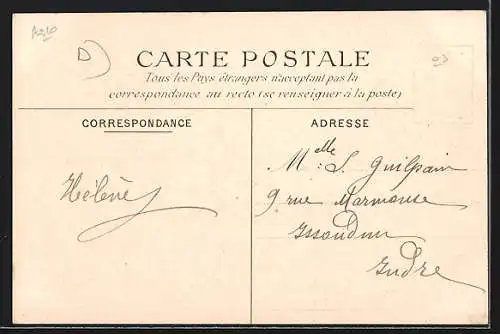 D)
CARTE POSTALE
Tous les Pays étrangers n'acceptant pas la
correspondance au recto (se renseigner à la poste)
CORRESPONDANCE
ADRESSE
Hélène
Melle S. Guilpain
9 rue Marmouse
Issoudun
Indre